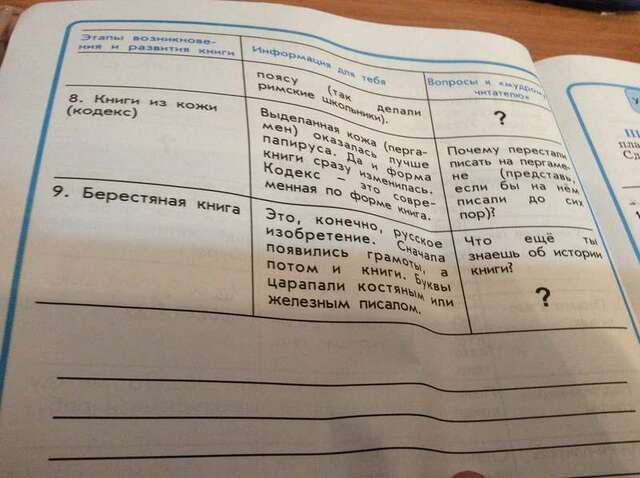 Этапы возникнове-
ния и развития книги
Информация для тебя
Вопросы к «мудрому
читателю»
поясу (так делали
римские школьники).
?
8. Книги из кожи
(кодекс)
Выделанная кожа (перга-
мен) оказалась лучше
папируса. Да и форма
книги сразу изменилась.
Кодекс – это совре-
менная по форме книга.
Почему перестали
писать на пергаме-
не (представь,
если бы на нём
писали до сих
пор)?
9. Берестяная книга
Это, конечно, русское
изобретение. Сначала
появились грамоты, а
потом и книги. Буквы
царапали костяным или
железным писалом.
Что ещё ты
знаешь об истории
книги?
?